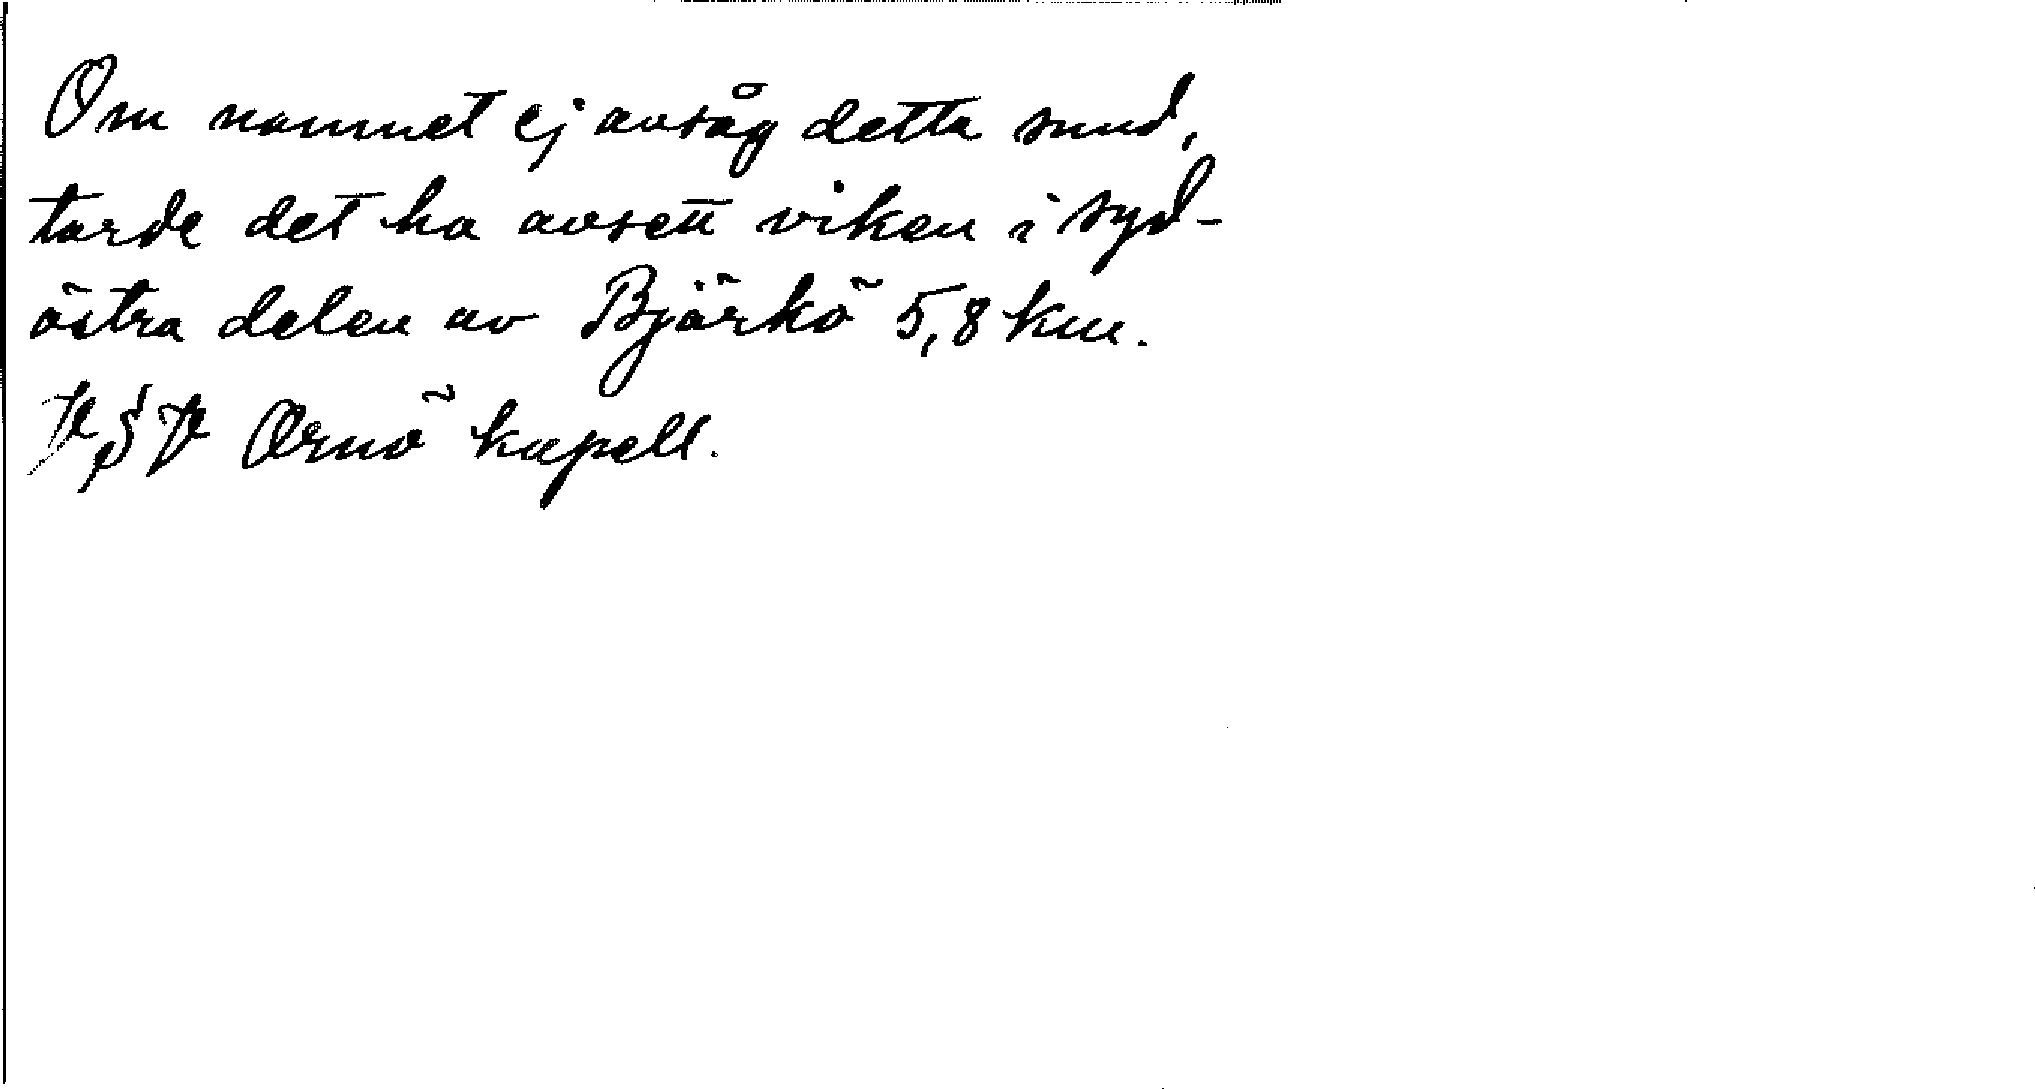 Om namnet ej avsåg detta sund,
torde det ha avsett viken i syd-
östra delen av Björkö 5,8 km.
Ornö kapell.